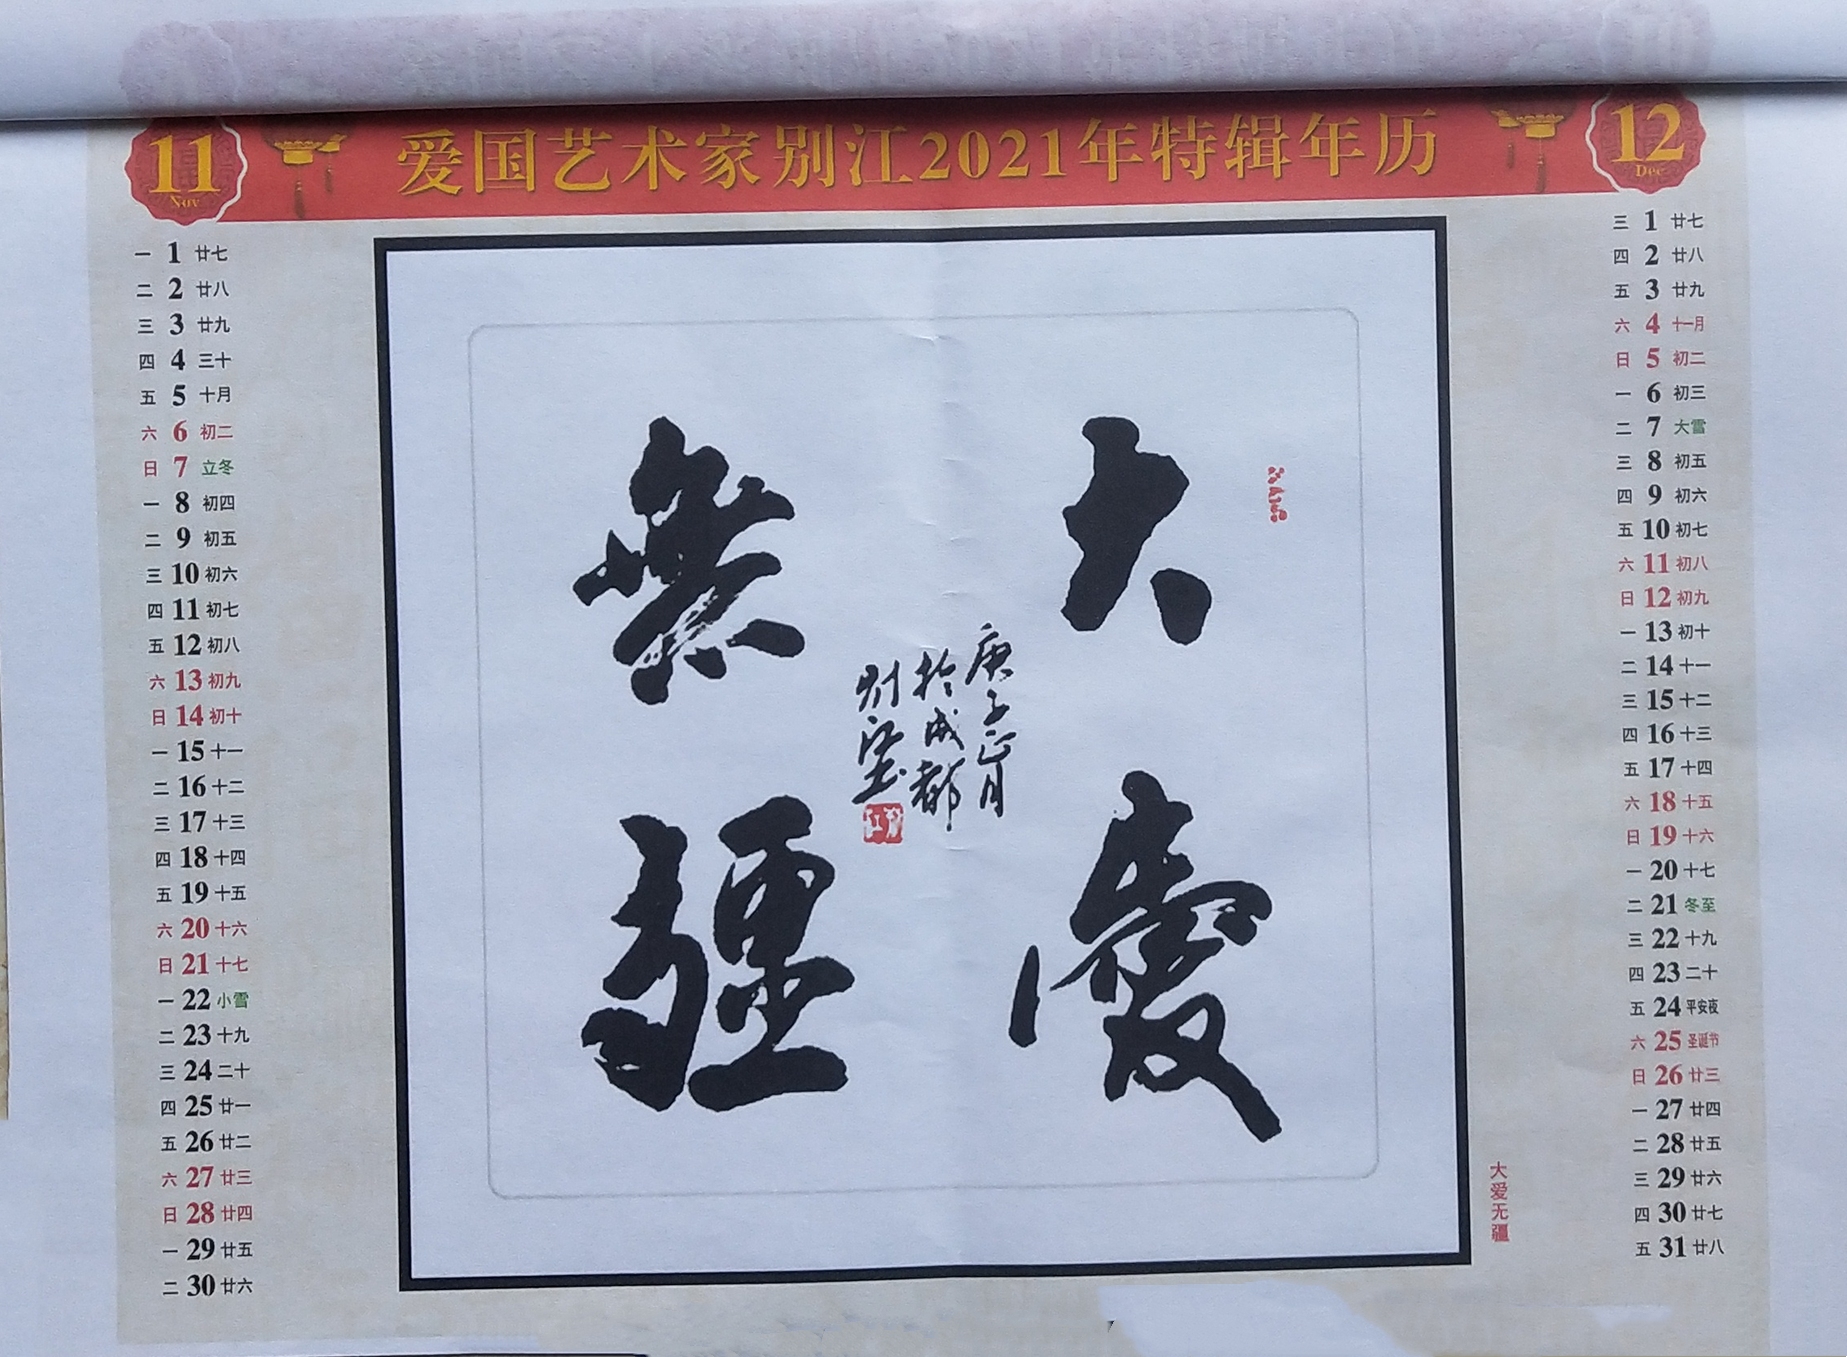 爱国艺术家别江2021年特辑年历
11
Nov
一 1 廿七
二 2 廿八
三 3 廿九
四 4 三十
五 5 十月
六 6 初二
日 7 立冬
一 8 初四
二 9 初五
三 10 初六
四 11 初七
五 12 初八
六 13 初九
日 14 初十
一 15 十一
二 16 十二
三 17 十三
四 18 十四
五 19 十五
六 20 十六
日 21 十七
一 22 小雪
二 23 十九
三 24 二十
四 25 廿一
五 26 廿二
六 27 廿三
日 28 廿四
一 29 廿五
二 30 廿六
大愛
無疆
庚子正月
於成都
别江
12
Dec
三 1 廿七
四 2 廿八
五 3 廿九
六 4 十一月
日 5 初二
一 6 初三
二 7 大雪
三 8 初五
四 9 初六
五 10 初七
六 11 初八
日 12 初九
一 13 初十
二 14 十一
三 15 十二
四 16 十三
五 17 十四
六 18 十五
日 19 十六
一 20 十七
二 21 冬至
三 22 十九
四 23 二十
五 24 平安夜
六 25 圣诞节
日 26 廿三
一 27 廿四
二 28 廿五
三 29 廿六
四 30 廿七
五 31 廿八
大爱无疆